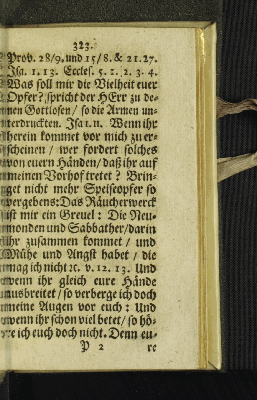 323.
Prov. 28/9. und 15/8. & 21.27.
Isa. 1. 13. Eccles. 5. 1. 2. 3. 4.
Was soll mir die Vielheit euer
Opfer? spricht der HErr zu de-
nen Gottlosen / so die Armen un-
terdruckten. Isa 1. 11. Wenn ihr
herein kommet vor mich zu er-
scheinen / wer fordert solches
von euern Händen / daß ihr auf
meinen Vorhof tretet? Brin-
get nicht mehr Speisopfer so
vergebens: Das Räucherwerck
ist mir ein Greuel: Die Neu-
monden und Sabbather / darin
ihr zusammen kommet / und
Mühe und Angst habet / die
mag ich nicht ꝛc. v. 12. 13. Und
wenn ihr gleich eure Hände
ausbreitet / so verberge ich doch
meine Augen vor euch: Und
wenn ihr schon viel betet / so hö-
re ich euch doch nicht. Denn eu-
P 2 re